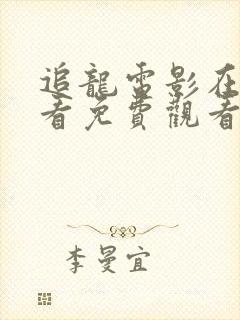 追龍電影在
看免費觀看
李曼宜